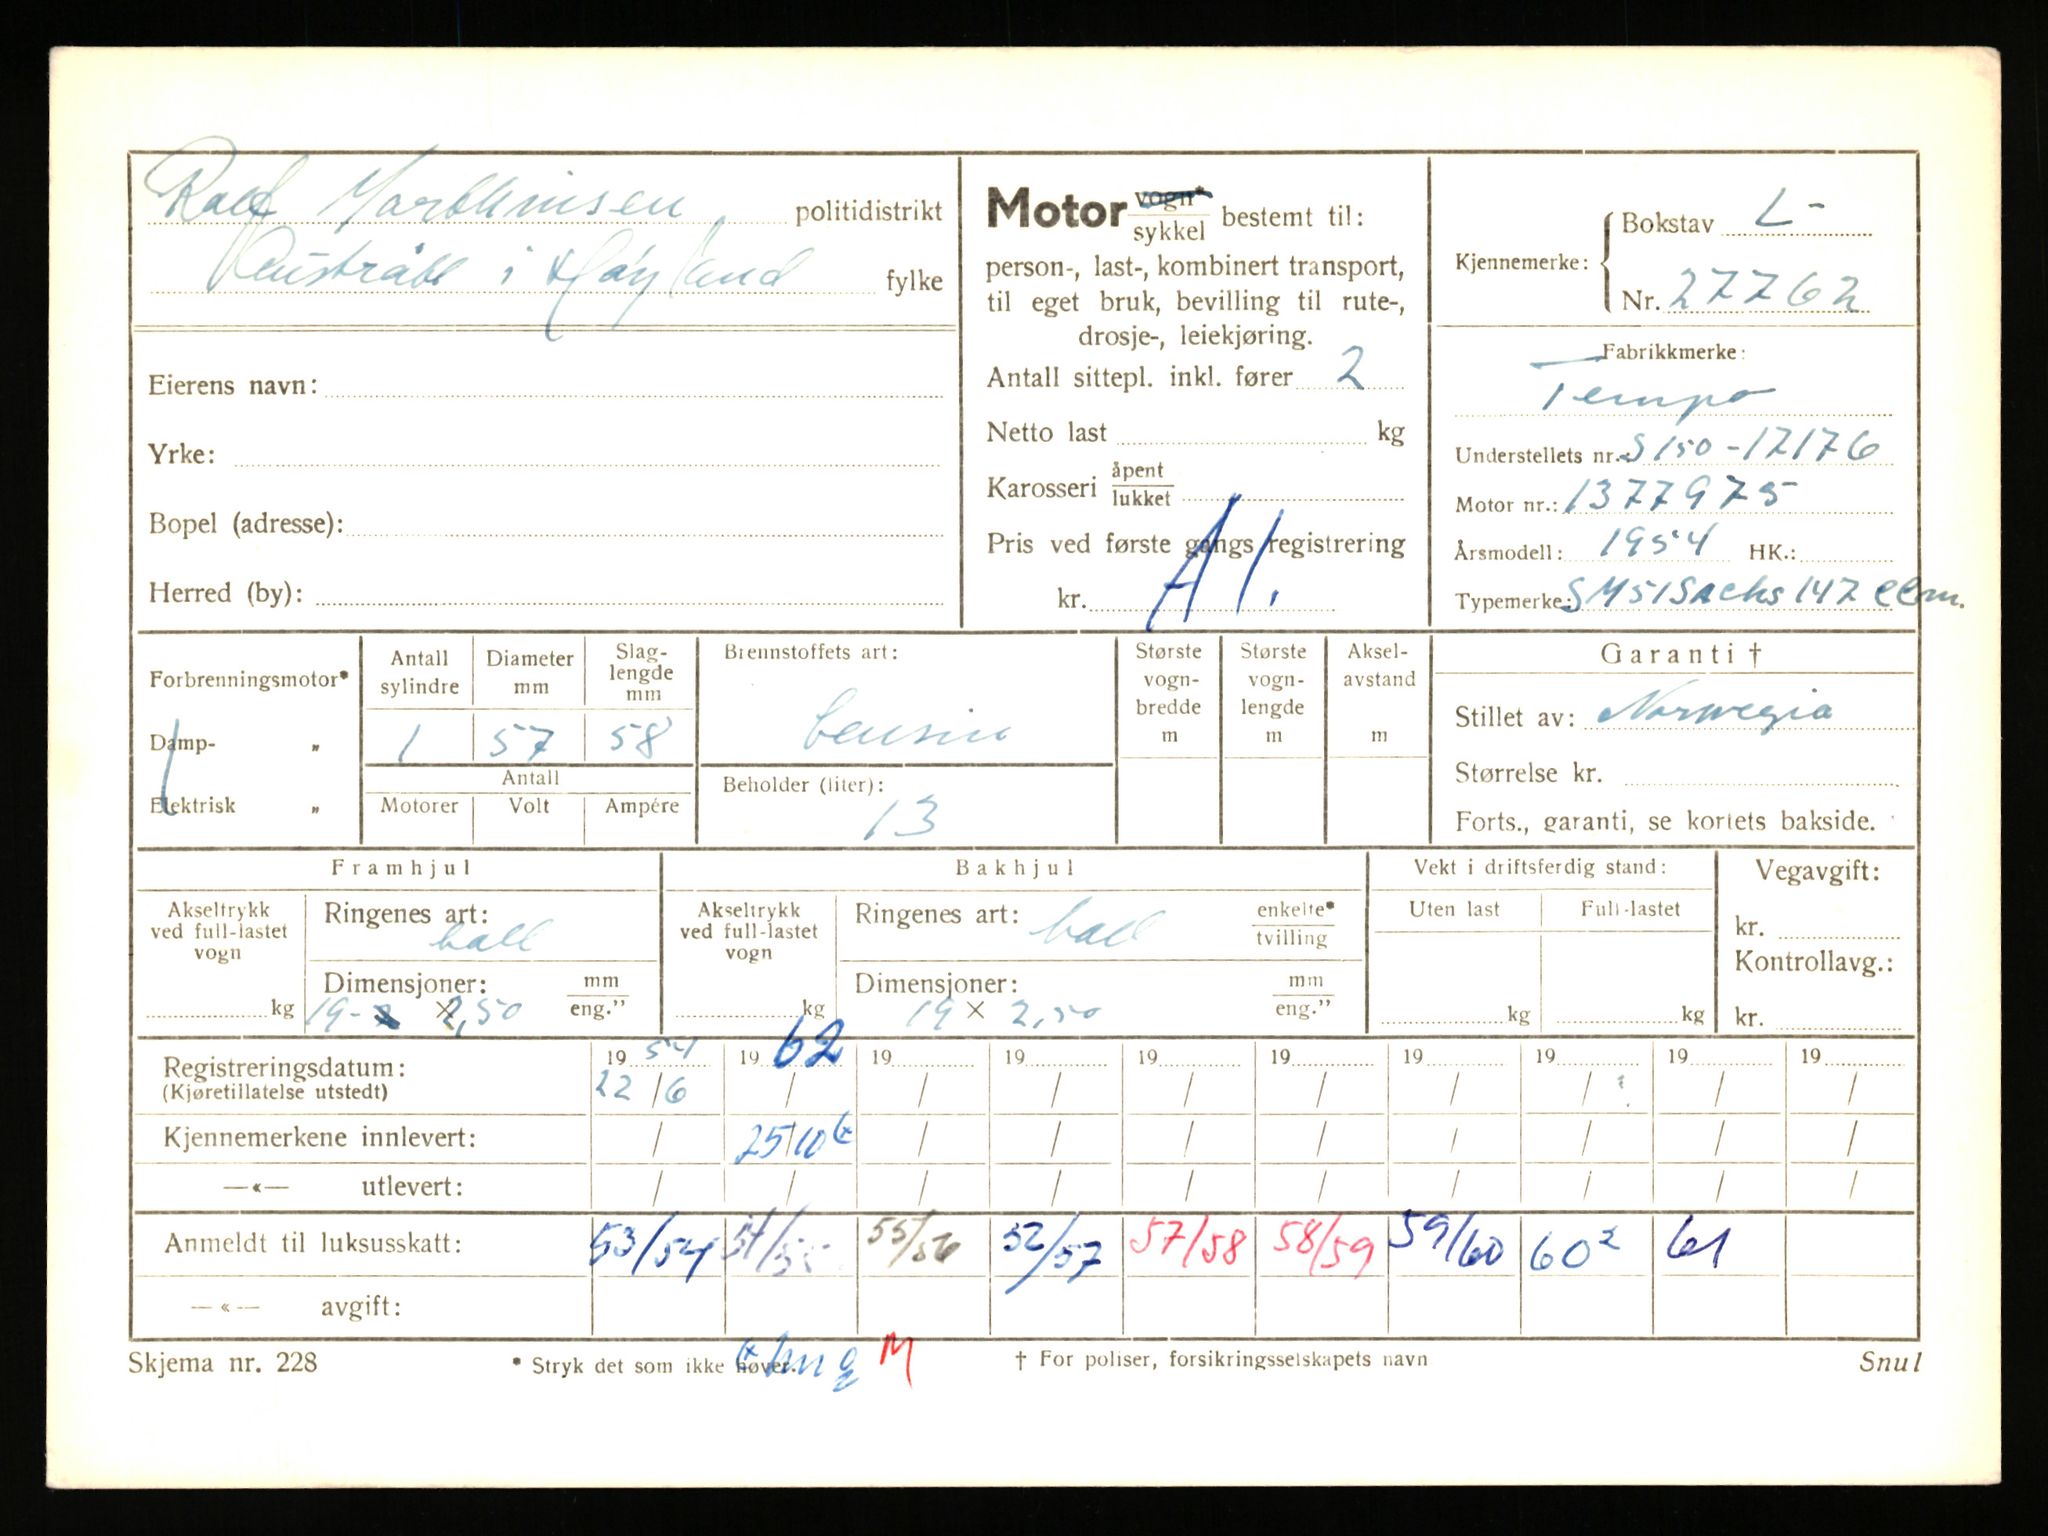 Rolf Marthinsen politidistrikt
Austrått i Høyland fylke
Eierens navn:
Yrke:
Bopel (adresse):
Herred (by):
Motor vogn* / sykkel bestemt til:
person-, last-, kombinert transport,
til eget bruk, bevilling til rute-,
drosje-, leiekjøring.
Antall sittepl. inkl. fører 2
Netto last kg
Karosseri åpent / lukket
Pris ved første gangs registrering
kr. A1.
Kjennemerke: Bokstav L-
Nr. 27762
Fabrikkmerke:
Tempo
Understellets nr.: S150-17176
Motor nr.: 1377975
Årsmodell: 1954 HK.:
Typemerke: SM51 Sachs 147 ccm.
Forbrenningsmotor*
Damp- „
Elektrisk „
Antall sylindre Diameter mm Slaglengde mm
1 57 58
Antall
Motorer Volt Ampére
Brennstoffets art:
bensin
Beholder (liter):
13
Største vognbredde m
Største vognlengde m
Akselavstand m
Garanti †
Stillet av: Norwegia
Størrelse kr.
Forts., garanti, se kortets bakside.
Framhjul
Akseltrykk ved full-lastet vogn kg
Ringenes art: ball
Dimensjoner: mm / eng."
19- x 2,50
Bakhjul
Akseltrykk ved full-lastet vogn kg
Ringenes art: ball enkelte* / tvilling
Dimensjoner: mm / eng."
19 x 2,50
Vekt i driftsferdig stand:
Uten last Full-lastet
kg kg
Vegavgift:
kr.
Kontrollavg.:
kr.
Registreringsdatum: 19 54 19 62 19 19 19 19 19 19 19 19
(Kjøretillatelse utstedt) 22/6 / / / / / / / / /
Kjennemerkene innlevert: / 25/10 / / / / / / / /
—«— utlevert: / / / / / / / / / /
Anmeldt til luksusskatt: 53/54 54/55 55/56 52/57 57/58 58/59 59/60 60² 61
—«— avgift:
Skjema nr. 228 * Stryk det som ikke høver. M † For poliser, forsikringsselskapets navn Snul